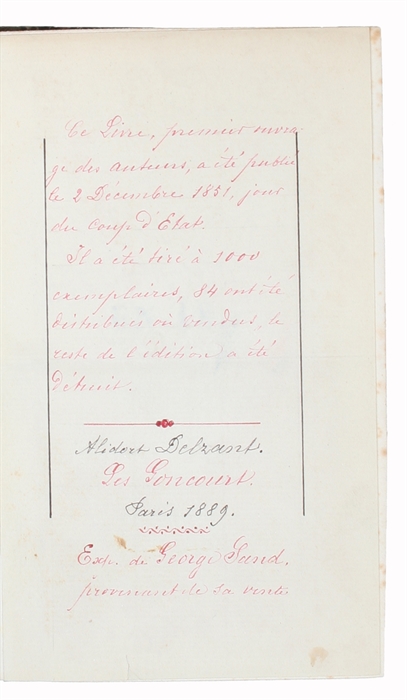 Ce Livre, premier ouvra
ge des auteurs, a été publié
le 2 Décembre 1851, jour
du coup d'Etat.
Il a été tiré à 1000
exemplaires, 84 ont été
distribués ou vendus, le
reste de l'édition a été
détruit.
Alidort Delzant.
Les Goncourt.
Paris 1889.
Ext. de George Sand.
provenant de sa vente